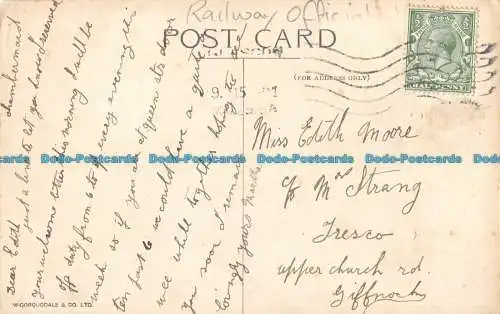 Railway Official
POST CARD
(FOR ADDRESS ONLY)
HALFPENNY
chambermaid
Dear Edith
just a minute to let you know I received
your welcome letter this morning I will be
off duty from 6 to 7 every evening this
week so if you are at queen sts door
ten past 6 we could have a quite
wee while together hoping to
you soon I remain
lovingly yours
Miss Edith Moore
c/o Mrs Strang
Tresco
upper church rd.
Giffnock
McCORQUODALE & CO. LTD.
Dodo-Postcards.com Dodo-Postcards.com Dodo-Postcards.com